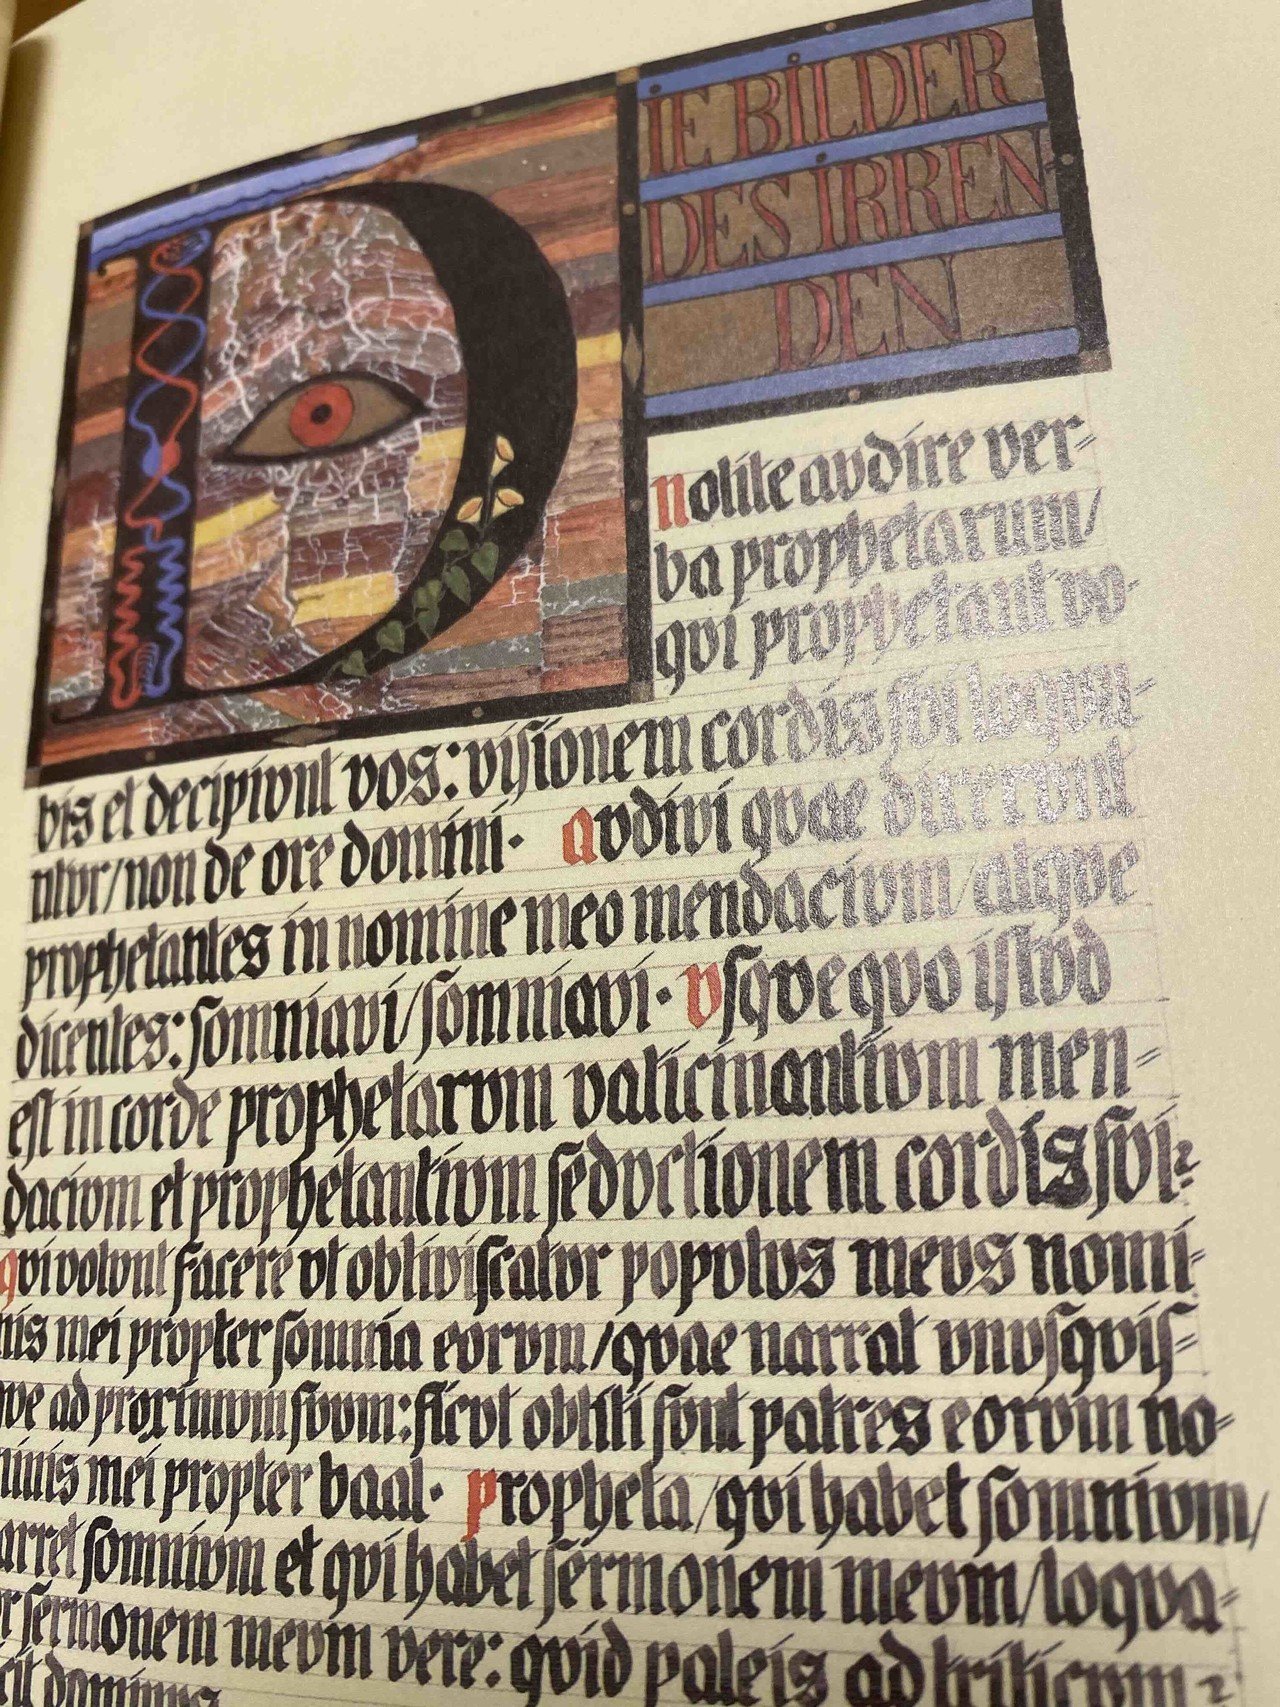 DIE BILDER
DES IRREN
DEN.
nolite audire ver=
ba prophetarum/
qui prophetant vo-
bis et decipiunt vos: visionem cordis sui loquu=
ntur/non de ore domini. audivi quae dixerunt
prophetantes in nomine meo mendacium/atque
dicentes: somniavi/somniavi. usquequo istud
est in corde prophetarum vaticinantium men=
dacium et prophetantium seductionem cordis sui?
qui volunt facere ut obliviscatur populus meus nomi=
nis mei propter somnia eorum/quae narrat unusquis=
que ad proximum suum: sicut obliti sunt patres eorum no=
minis mei propter baal. propheta/qui habet somnium/
narret somnium et qui habet sermonem meum/loqua=
tur sermonem meum vere: quid paleis ad triticum?
dicit dominus